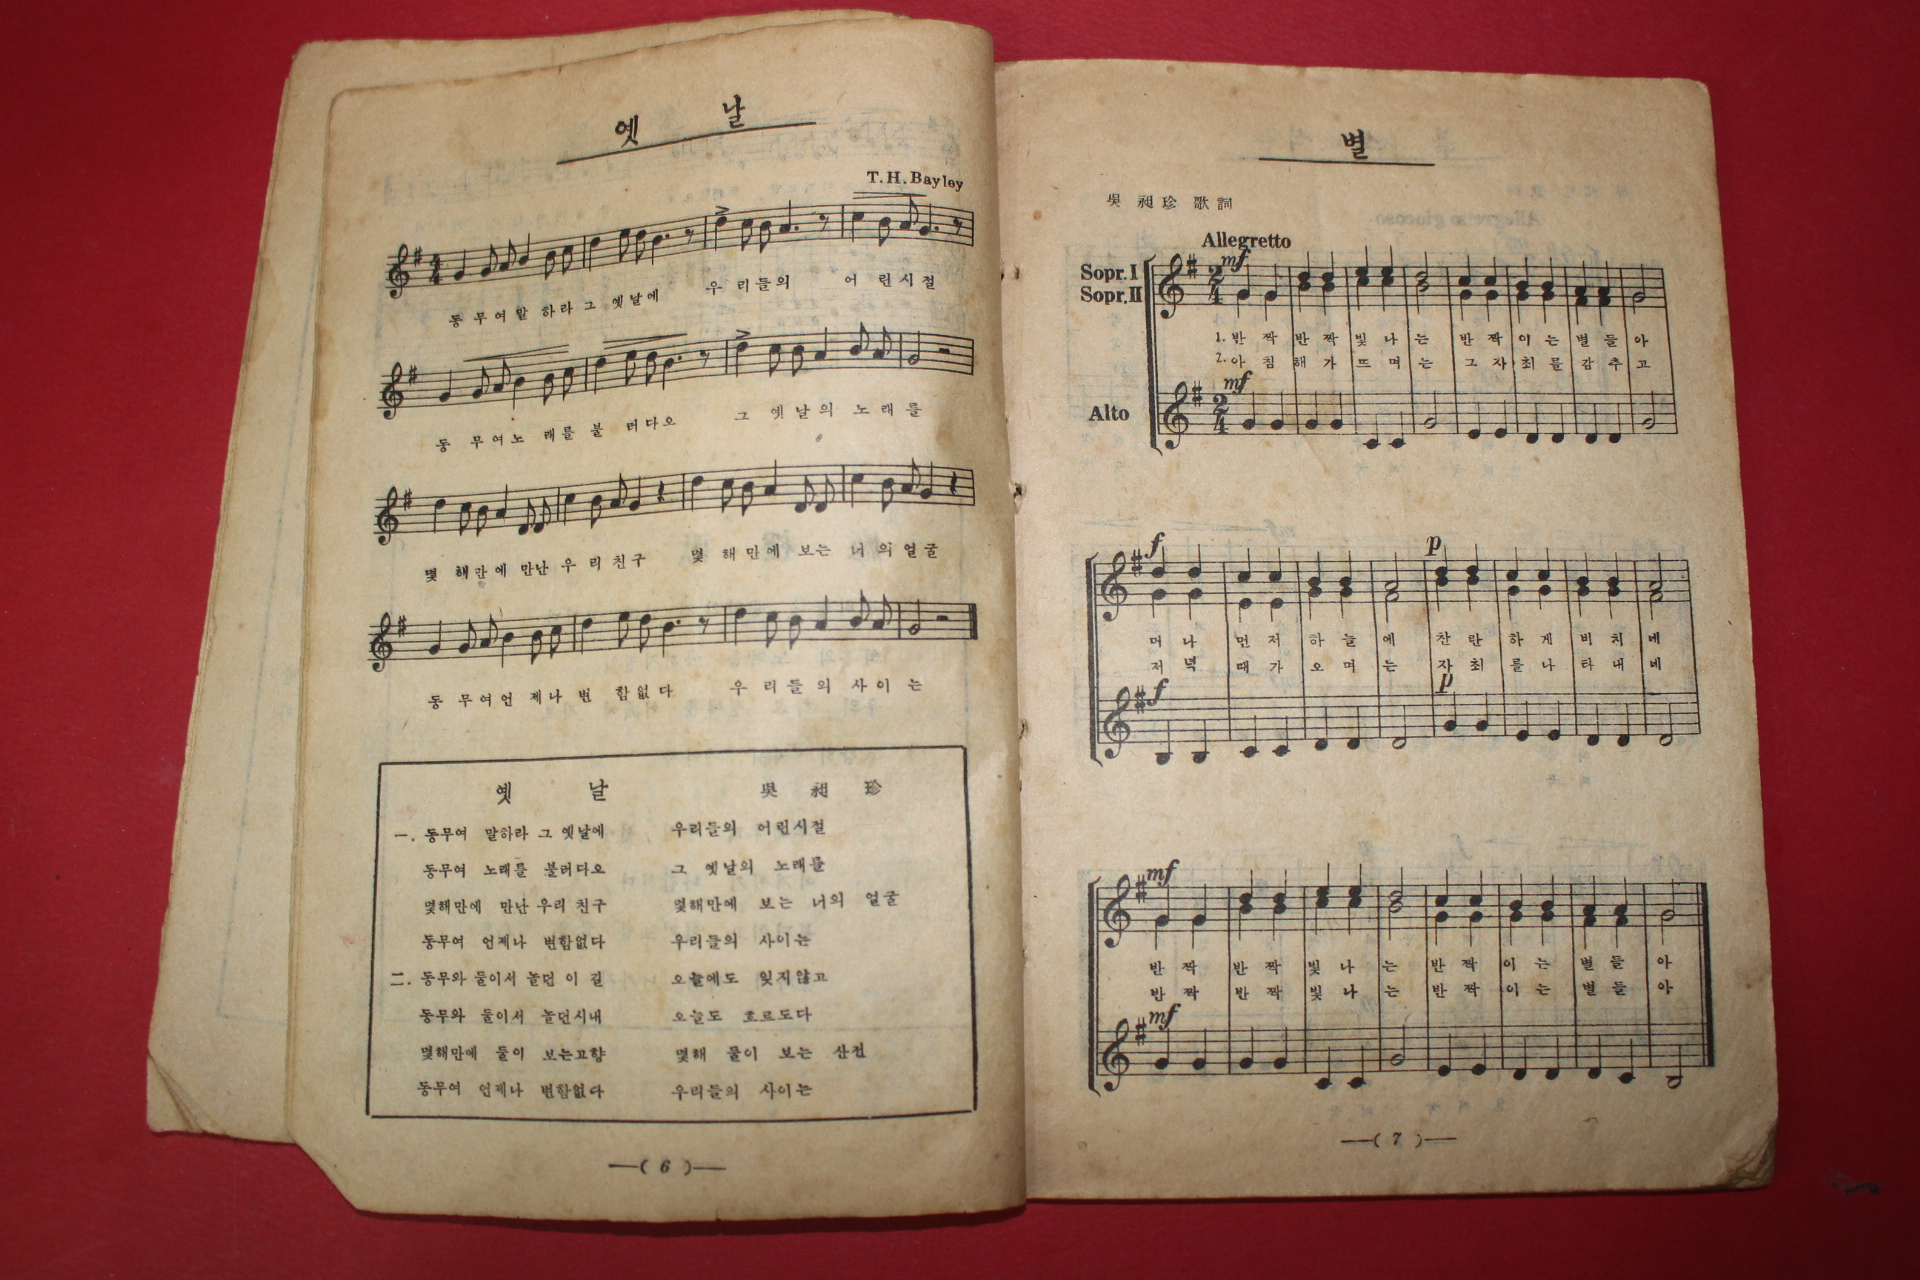 옛 날
T.H.Bayley
동 무여말 하라 그 옛날에 우 리들의 어 린시절
동 무여노 래를 불 러다오 그 옛 날의 노 래 를
몇 해만에 만난 우 리 친구 몇 해 만에 보는 너 의 얼굴
동 무여언 제나 변 함없다 우 리 들 의 사 이 는
옛 날 吳 昶 珍
一. 동무여 말하라 그 옛날에 우리들의 어린시절
동무여 노래를 불러다오 그 옛날의 노래를
몇해만에 만난 우리 친구 몇해만에 보는 너의 얼굴
동무여 언제나 변함없다 우리들의 사이는
二. 동무와 둘이서 놀던 이 길 오늘에도 잊지않고
동무와 둘이서 놀던시내 오늘도 흐르도다
몇해만에 둘이 보는고향 몇해 둘이 보는 산천
동무여 언제나 변함없다 우리들의 사이는
—( 6 )—
별
吳 昶 珍 歌 詞
Allegretto
Sopr. I
Sopr. II
mf
1. 반 짝 반 짝 빛 나 는 반 짝 이 는 별 들 아
2. 아 침 해 가 뜨 며 는 그 자 최 를 감 추 고
mf
Alto
f p
머 나 먼 저 하 늘 에 찬 란 하 게 비 치 네
저 녁 때 가 오 며 는 자 최 를 나 타 내 네
f p
mf
반 짝 반 짝 빛 나 는 반 짝 이 는 별 들 아
반 짝 반 짝 빛 나 는 반 짝 이 는 별 들 아
mf
—( 7 )—